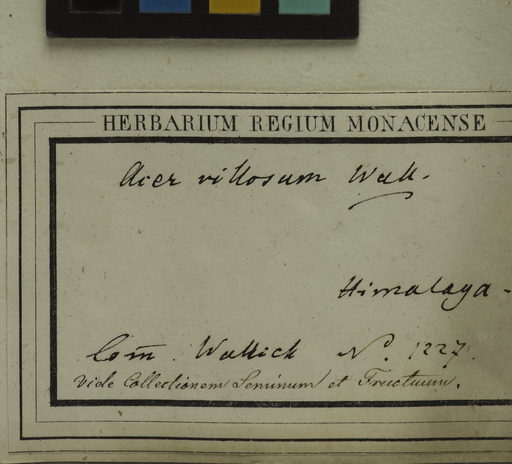 HERBARIUM REGIUM MONACENSE
Acer villosum Wall.
Himalaya.
Com̅. Wallich No. 1227.
Vide Collectionem Seminum et Fructuum.